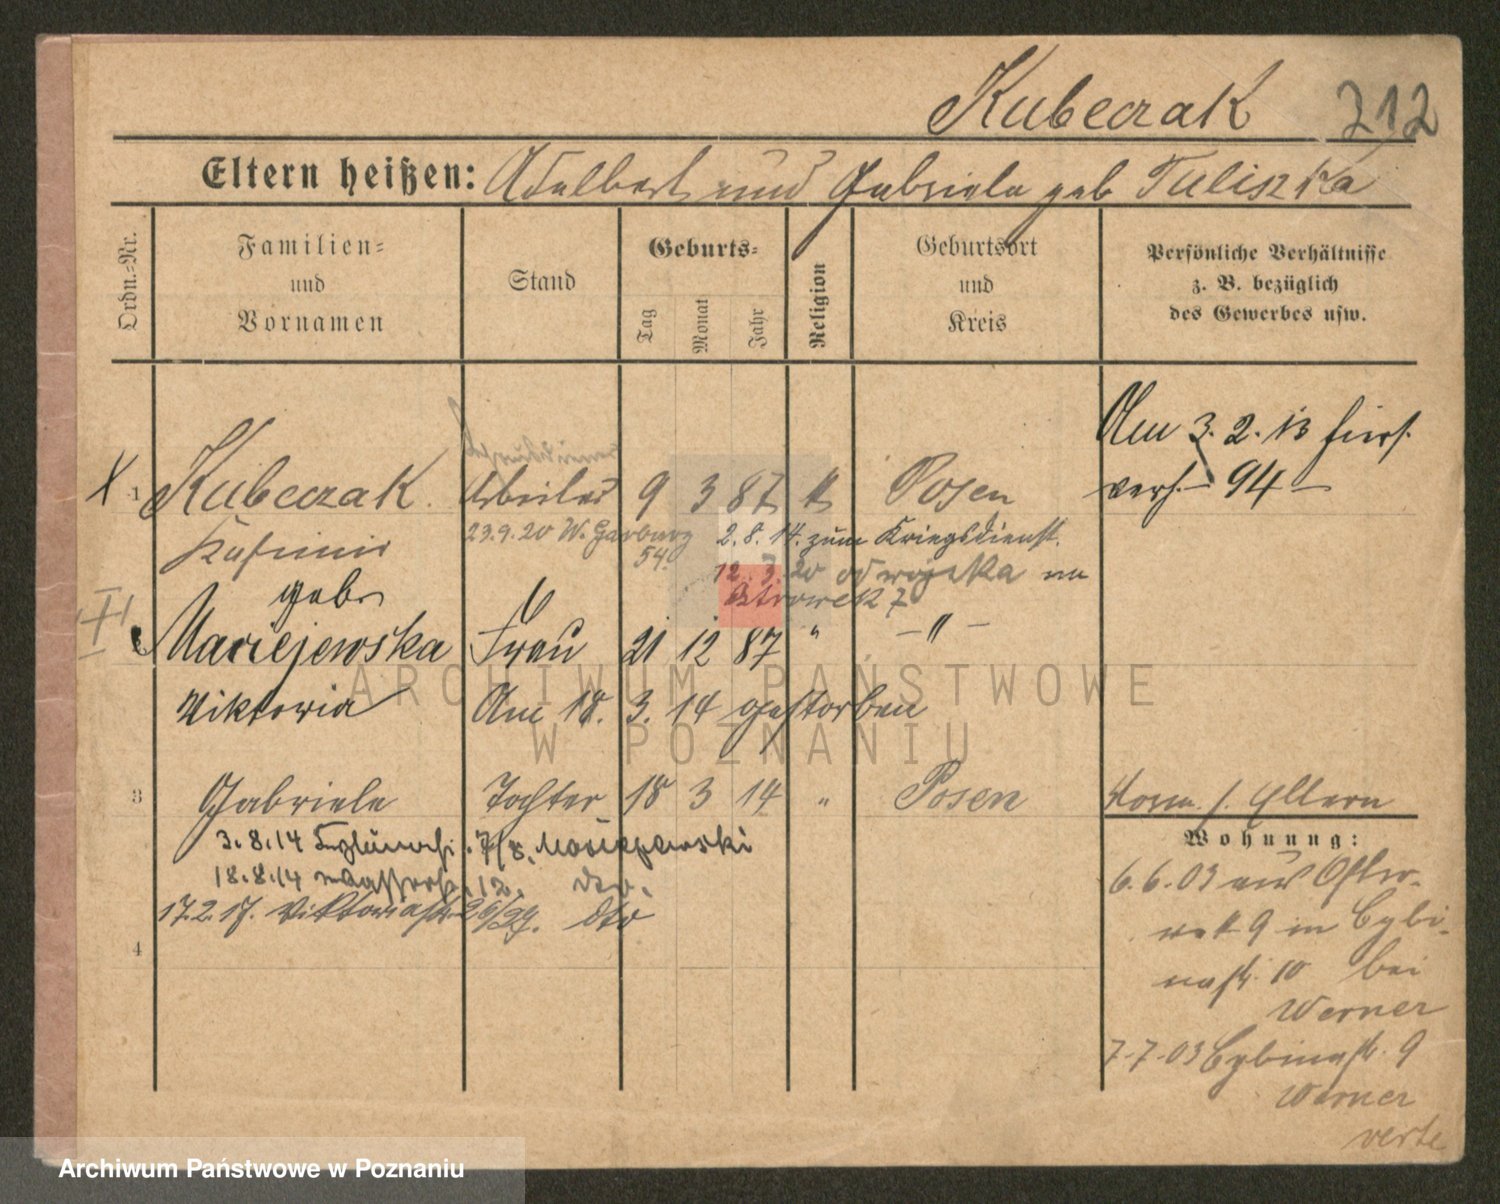 Kubeczak 212
Eltern heißen: Adalbert und Gabriele geb Tuliszka
Ordn.-Nr.
Familien-
und
Vornamen
Stand
Geburts-
Tag
Monat
Jahr
Religion
Geburtsort
und
Kreis
Persönliche Verhältnisse
z. B. bezüglich
des Gewerbes usw.
Am 3. 2. 13
94
X 1 Kubeczak Arbeiter 9 3 87 k Posen
Kasimir
23.9.20 W. Garbary
54.
2.8.14. zum Kriegsdienst.
12. 3. 20 od wojska na
Ostrówek 7
geb.
Maciejewska Frau 21 12 87 " — " —
Viktoria Am 18. 3. 14 gestorben
3 Gabriele Tochter 18 3 14 " Posen
Eltern
3.8.14 7/8. Maciejewski
18.8.14 12. dto.
17.2.17. Viktoriastr. 26/29. dto
4
Wohnung:
6.6.03 aus Ostro-
wek 9 in Cybi-
nastr. 10 bei
Werner
7.7.03 Cybinastr. 9
Werner
verte
ARCHIWUM PAŃSTWOWE
W POZNANIU
Archiwum Państwowe w Poznaniu